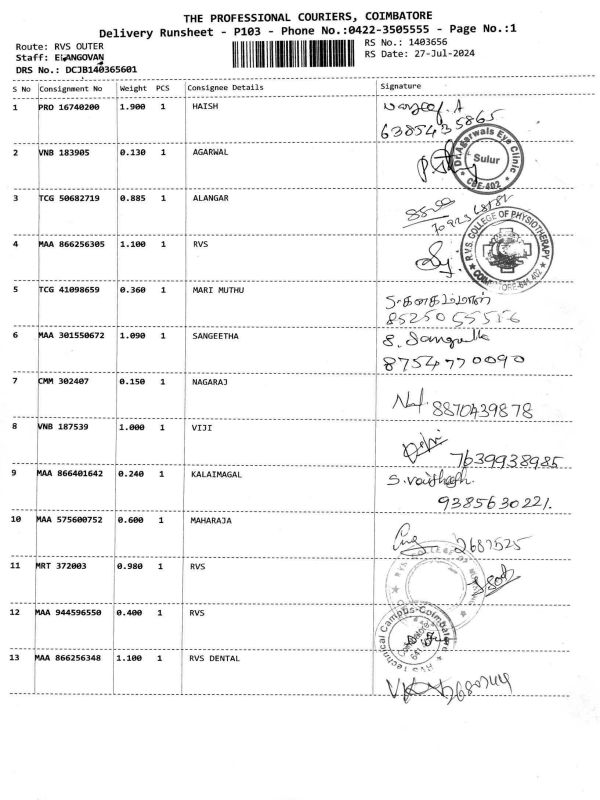 THE PROFESSIONAL COURIERS, COIMBATORE
Delivery Runsheet - P103 - Phone No.:0422-3505555 - Page No.:1
Route: RVS OUTER
RS No.: 1403656
Staff: ELANGOVAN
RS Date: 27-Jul-2024
DRS No.: DCJB140365601
S No Consignment No Weight PCS Consignee Details Signature
1 PRO 16740200 1.900 1 HAISH
6385435865
2 VNB 183905 0.130 1 AGARWAL
Dr.Agarwals Eye Clinic
Sulur
CBE-402
3 TCG 50682719 0.885 1 ALANGAR
4 MAA 866256305 1.100 1 RVS
R.V.S. COLLEGE OF PHYSIOTHERAPY
COIMBATORE-641 402
5 TCG 41098659 0.360 1 MARI MUTHU
85250 55516
6 MAA 301550672 1.090 1 SANGEETHA
8754770090
7 CMM 302407 0.150 1 NAGARAJ
8870439878
8 VNB 187539 1.000 1 VIJI
7639938985
9 MAA 866401642 0.240 1 KALAIMAGAL
9385630221.
10 MAA 575600752 0.600 1 MAHARAJA
2687525
11 MRT 372003 0.980 1 RVS
R.V.S. COLLEGE OF
12 MAA 944596550 0.400 1 RVS
RVS Technical Campus-Coimbatore
Coimbatore
641 402
13 MAA 866256348 1.100 1 RVS DENTAL